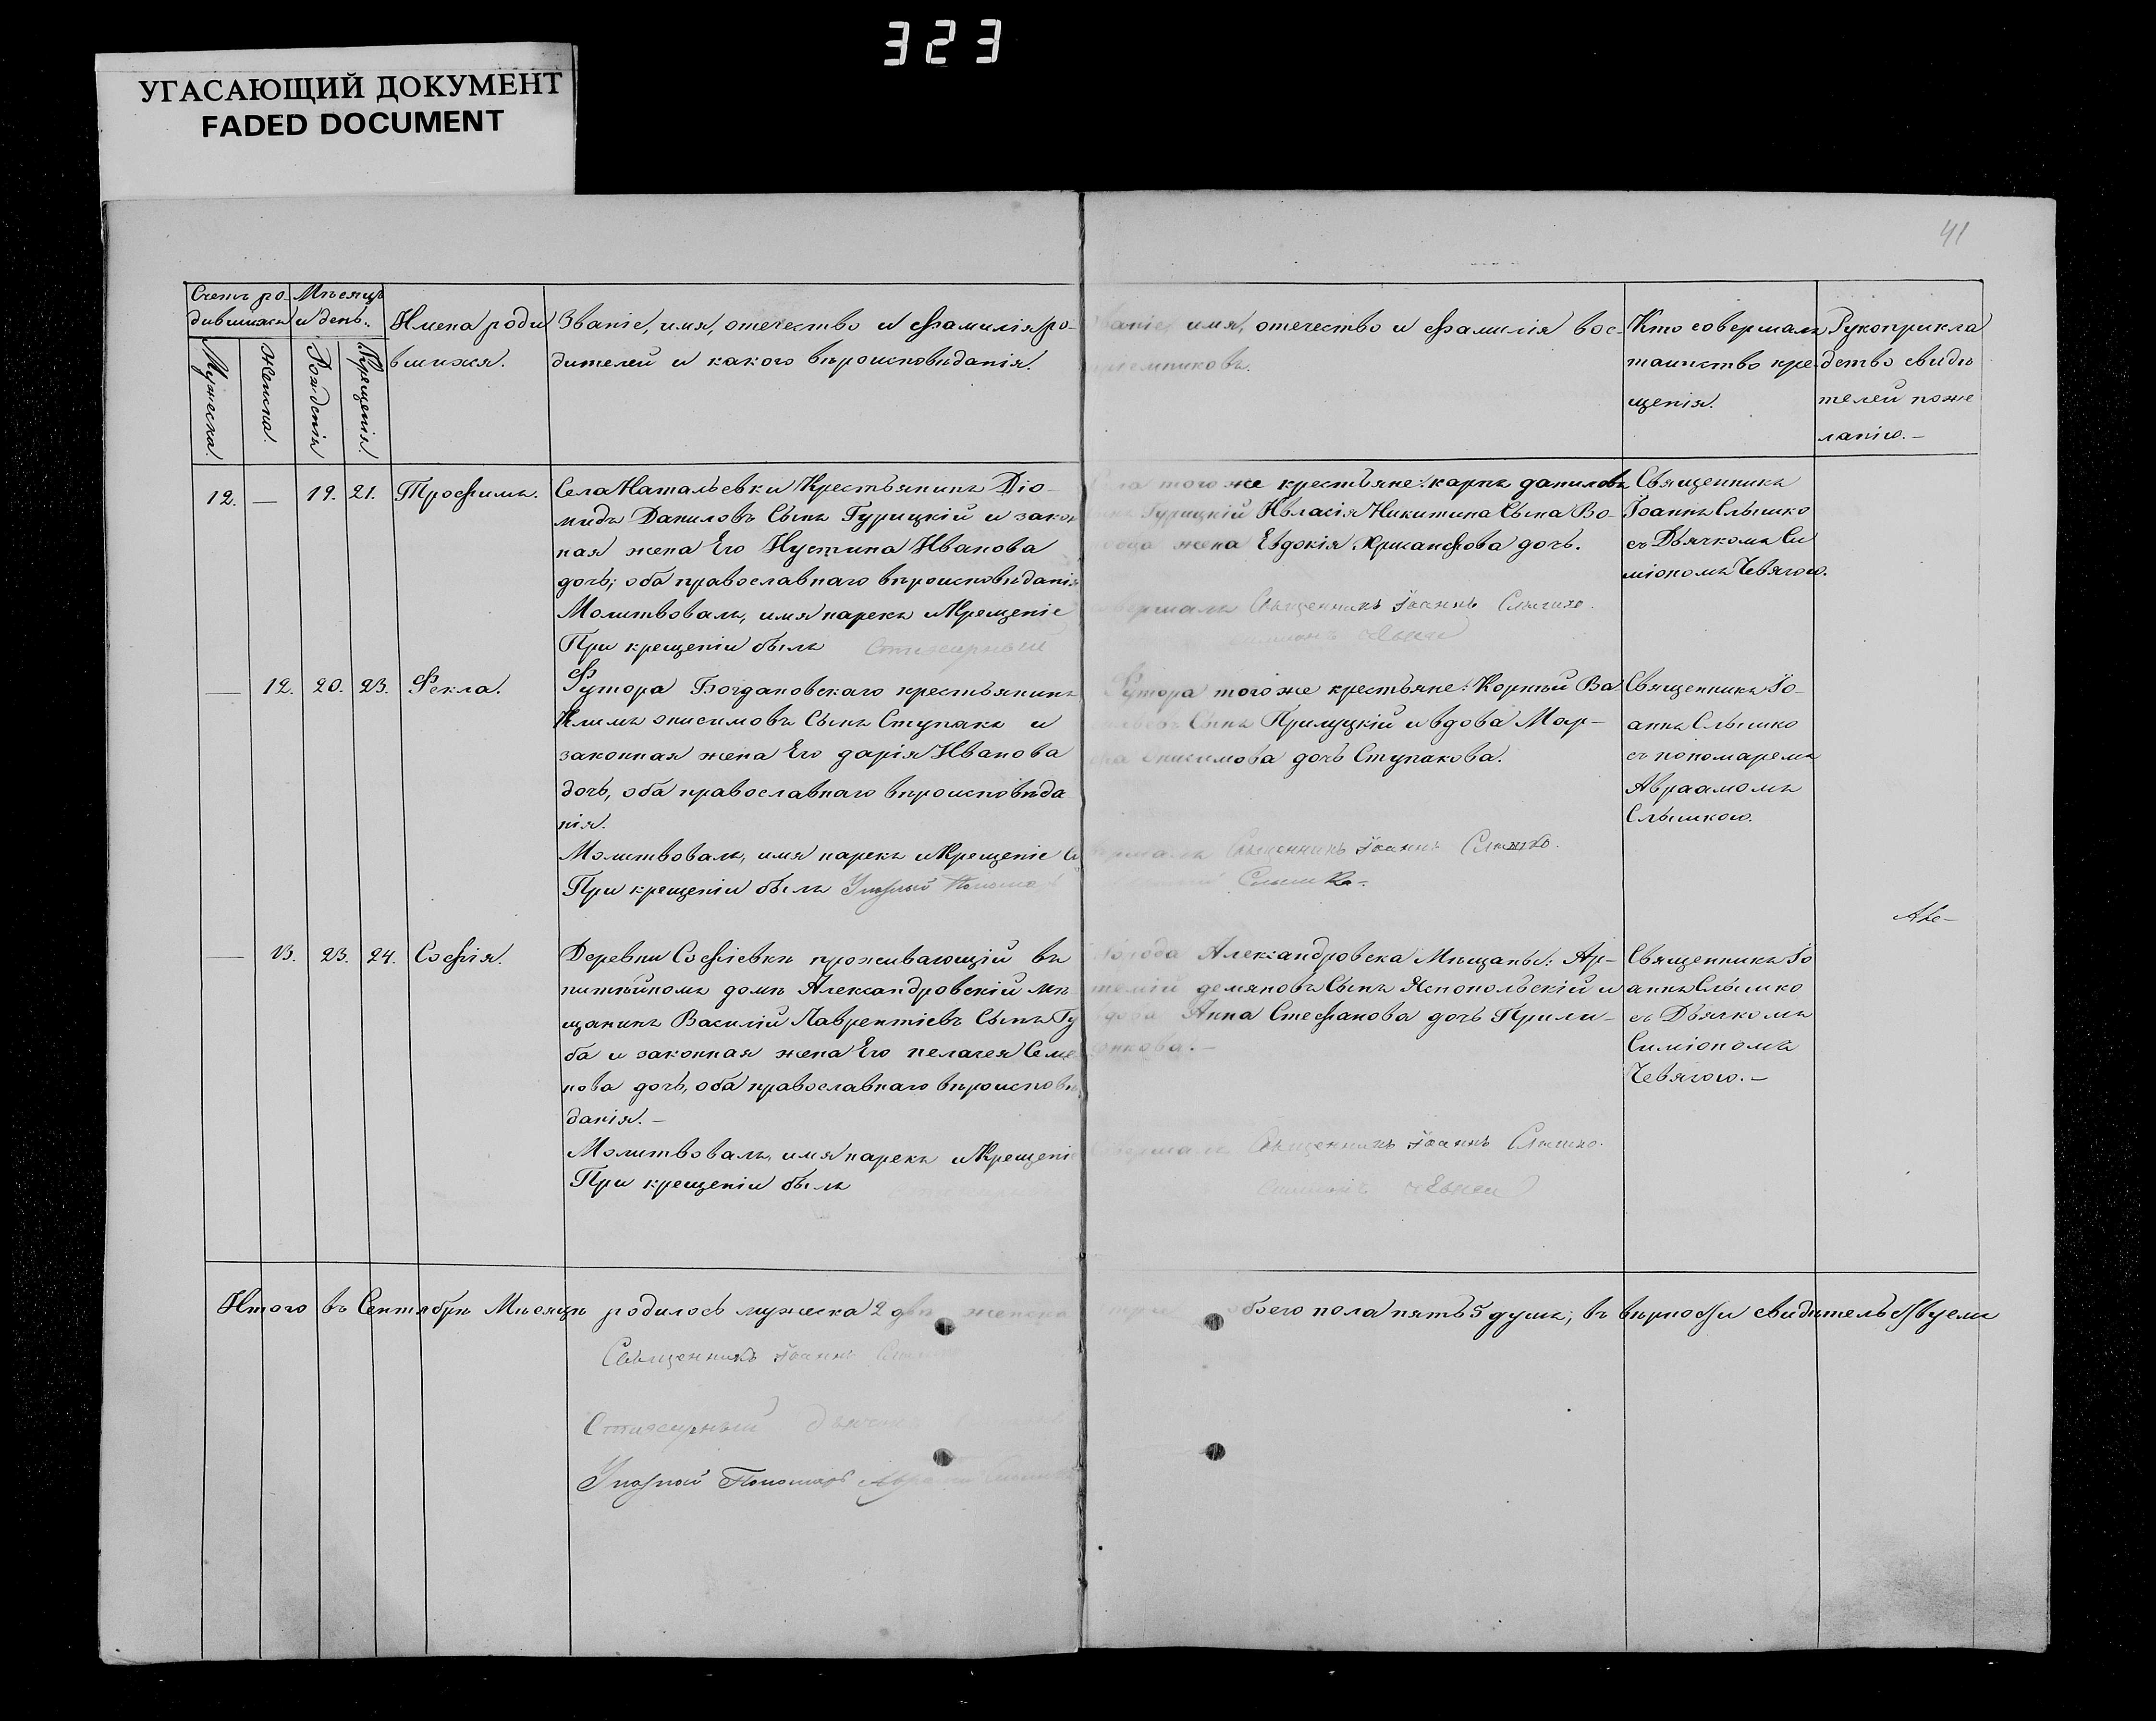 323
УГАСАЮЩИЙ ДОКУМЕНТ
FADED DOCUMENT
41
Счетъ ро-
дившихся
Мѣсяцъ
и день.
Мужеска.
Женска.
Рожденія
Крещенія.
Имена роди
вшихся.
Званіе, имя, отечество и фамилія ро-
дителей и какого вѣроисповѣданія.
Званіе, имя, отечество и фамилія вос-
пріемниковъ.
Кто совершалъ
таинство кре-
щенія.
Рукоприкла
дство свидѣ
телей по же
ланію.-
12. — 19. 21. Трофимъ.
Села Натальевки Крестьянинъ Діо-
мидъ Даниловъ Сынъ Гурицкій и закон
ная жена Его Иустина Иванова
дочь; оба православнаго вѣроисповѣданія
Молитвовалъ, имя нарекъ и Крещеніе
При крещеніи былъ Стихарный
Села того же крестьяне: карпъ даниловъ
Сынъ Гурицкій и Власія Никитина Сына Во-
жена Евдокія Хрисанфова дочь.
совершалъ Священникъ Іоаннъ Слышко.
Священникъ
Іоаннъ Слышко
съ Дьячкомъ Си
міономъ Чевягою.
— 12. 20. 23. Фекла.
Футора Богдановскаго крестьянинъ
Климъ онисимовъ Сынъ Ступакъ и
законная жена Его дарія Иванова
дочь, оба православнаго вѣроисповѣда
нія.
Молитвовалъ, имя нарекъ и Крещеніе Со
При крещеніи былъ Указный Пономарь
Футора того же крестьяне: Корнѣй Ва
сильевъ Сынъ Прилуцкій и вдова Мар-
ѳа Онисимова дочь Ступакова.
вершалъ Священникъ Іоаннъ Слышко.
Слышко.
Священникъ Іо-
аннъ Слышко
съ пономаремъ
Авраамомъ
Слышкою.
— 13. 23. 24. Софія.
Деревни Софіевки проживающій въ
питѣйномъ домѣ Александровскій мѣ
щанинъ Василій Лаврентіевъ Сынъ Гу
ба и законная жена Его пелагея Семе
нова дочь, оба православнаго вѣроисповѣ
данія.-
Молитвовалъ, имя нарекъ и Крещеніе
При крещеніи былъ
Города Александровска Мѣщаны: Ар-
темій демяновъ Сынъ Яснопольскій и
вдова Анна Стефанова дочь Прили-
пкова.-
Совершалъ Священникъ Іоаннъ Слышко.
Священникъ Іо
аннъ Слышко
съ Дьячкомъ
Симіономъ
Чевягою.-
Итого въ Сентябрѣ Мѣсяцѣ родилось мужеска 2 два женска три обоего пола пять 5 душъ; въ вѣрности свидѣтельствуемъ
Священникъ Іоаннъ Слышко
Стихарный дьячекъ
Указный Пономарь Авраамъ Слышко